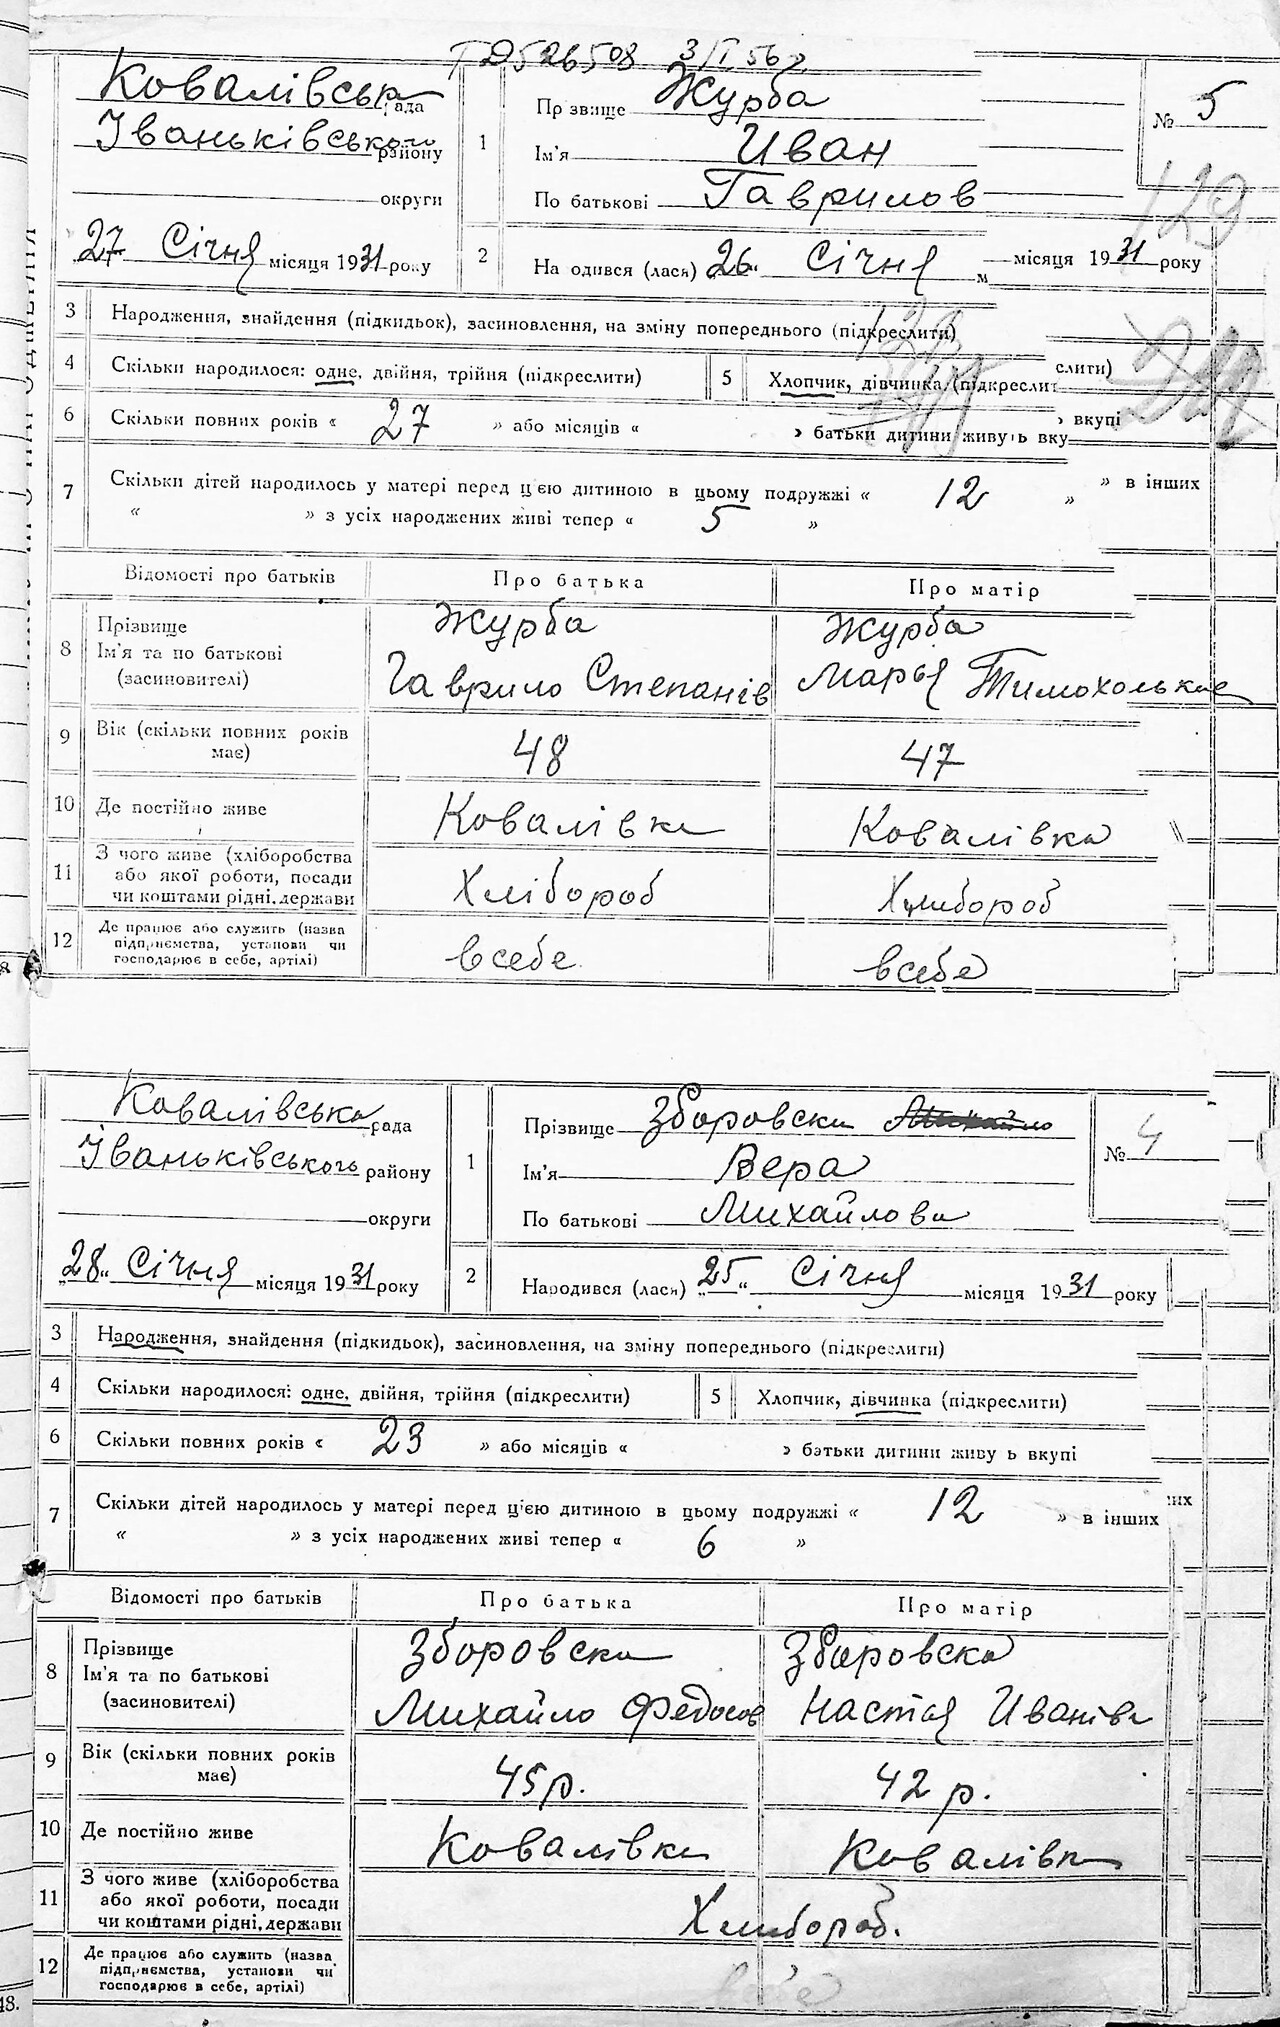 ТД 526508 3/I 56 г
Ковалівська рада
Іваньківського району
округи
27 Січня місяця 1931 року
1
Пр звище Журба
Ім'я Иван
По батькові Гаврилов
№ 5
129
2
На одився (лася) „26“ Січня місяця 1931 року
3 Народження, знайдення (підкидьок), засиновлення, на зміну попереднього (підкреслити)
4 Скільки народилося: одне, двійня, трійня (підкреслити) 5 Хлопчик, дівчинка (підкреслит слити)
6 Скільки повних років « 27 » або місяців « › батьки дитини живу ь вку › вкупі
7 Скільки дітей народилось у матері перед цією дитиною в цьому подружжі « 12 » » в інших
“ » з усіх народжених живі тепер « 5 »
Відомості про батьків Про батька Про матір
8 Прізвище Журба Журба
Ім'я та по батькові Гаврило Степанів Марья
(засиновителі)
9 Вік (скільки повних років має) 48 47
10 Де постійно живе Ковалівка Ковалівка
11 З чого живе (хліборобства
або якої роботи, посади Хлібороб Хлибороб
чи коштами рідні, держави
12 Де працює або служить (назва
підприємства, установи чи в себе в себе
господарює в себе, артілі)
Ковалівська рада
Іваньківського району
округи
„28“ Січня місяця 1931 року
1
Прізвище Зборовска Михайло
Ім'я Вера
По батькові Михайлова
№ 4
2
Народився (лася) „25“ Січня місяця 1931 року
3 Народження, знайдення (підкидьок), засиновлення, на зміну попереднього (підкреслити)
4 Скільки народилося: одне, двійня, трійня (підкреслити) 5 Хлопчик, дівчинка (підкреслити)
6 Скільки повних років « 23 » або місяців « › батьки дитини живу ь вкупі
7 Скільки дітей народилось у матері перед цією дитиною в цьому подружжі « 12 » в інших
“ » з усіх народжених живі тепер « 6 »
Відомості про батьків Про батька Про матір
8 Прізвище Зборовска Зборовска
Ім'я та по батькові Михайло Федосов Настья Иваніва
(засиновителі)
9 Вік (скільки повних років має) 45 р. 42 р.
10 Де постійно живе Ковалівка Ковалівка
11 З чого живе (хліборобства
або якої роботи, посади Хлибороб.
чи коштами рідні, держави
12 Де працює або служить (назва
підприємства, установи чи
господарює в себе, артілі) в себе
18.